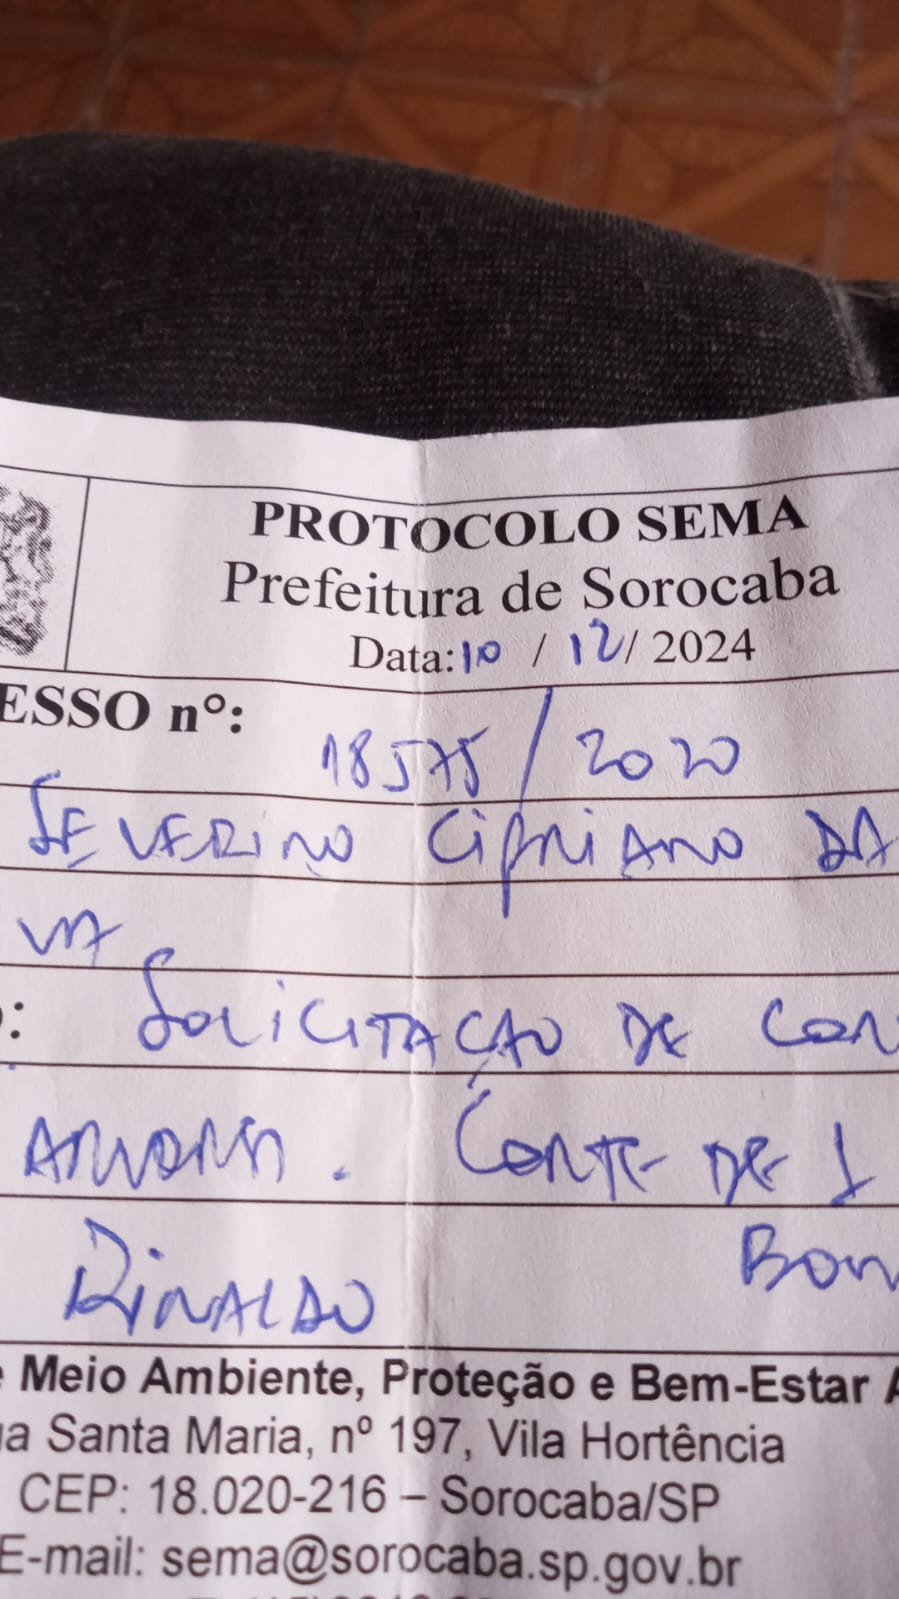 PROTOCOLO SEMA
Prefeitura de Sorocaba
Data: 10 / 12 / 2024
ESSO nº:
18575/2020
SEVERINO CIPRIANO DA
VA
: SOLICITAÇÃO DE COR
CORTE DE 1
RINALDO
Meio Ambiente, Proteção e Bem-Estar A
a Santa Maria, nº 197, Vila Hortência
CEP: 18.020-216 – Sorocaba/SP
E-mail: sema@sorocaba.sp.gov.br